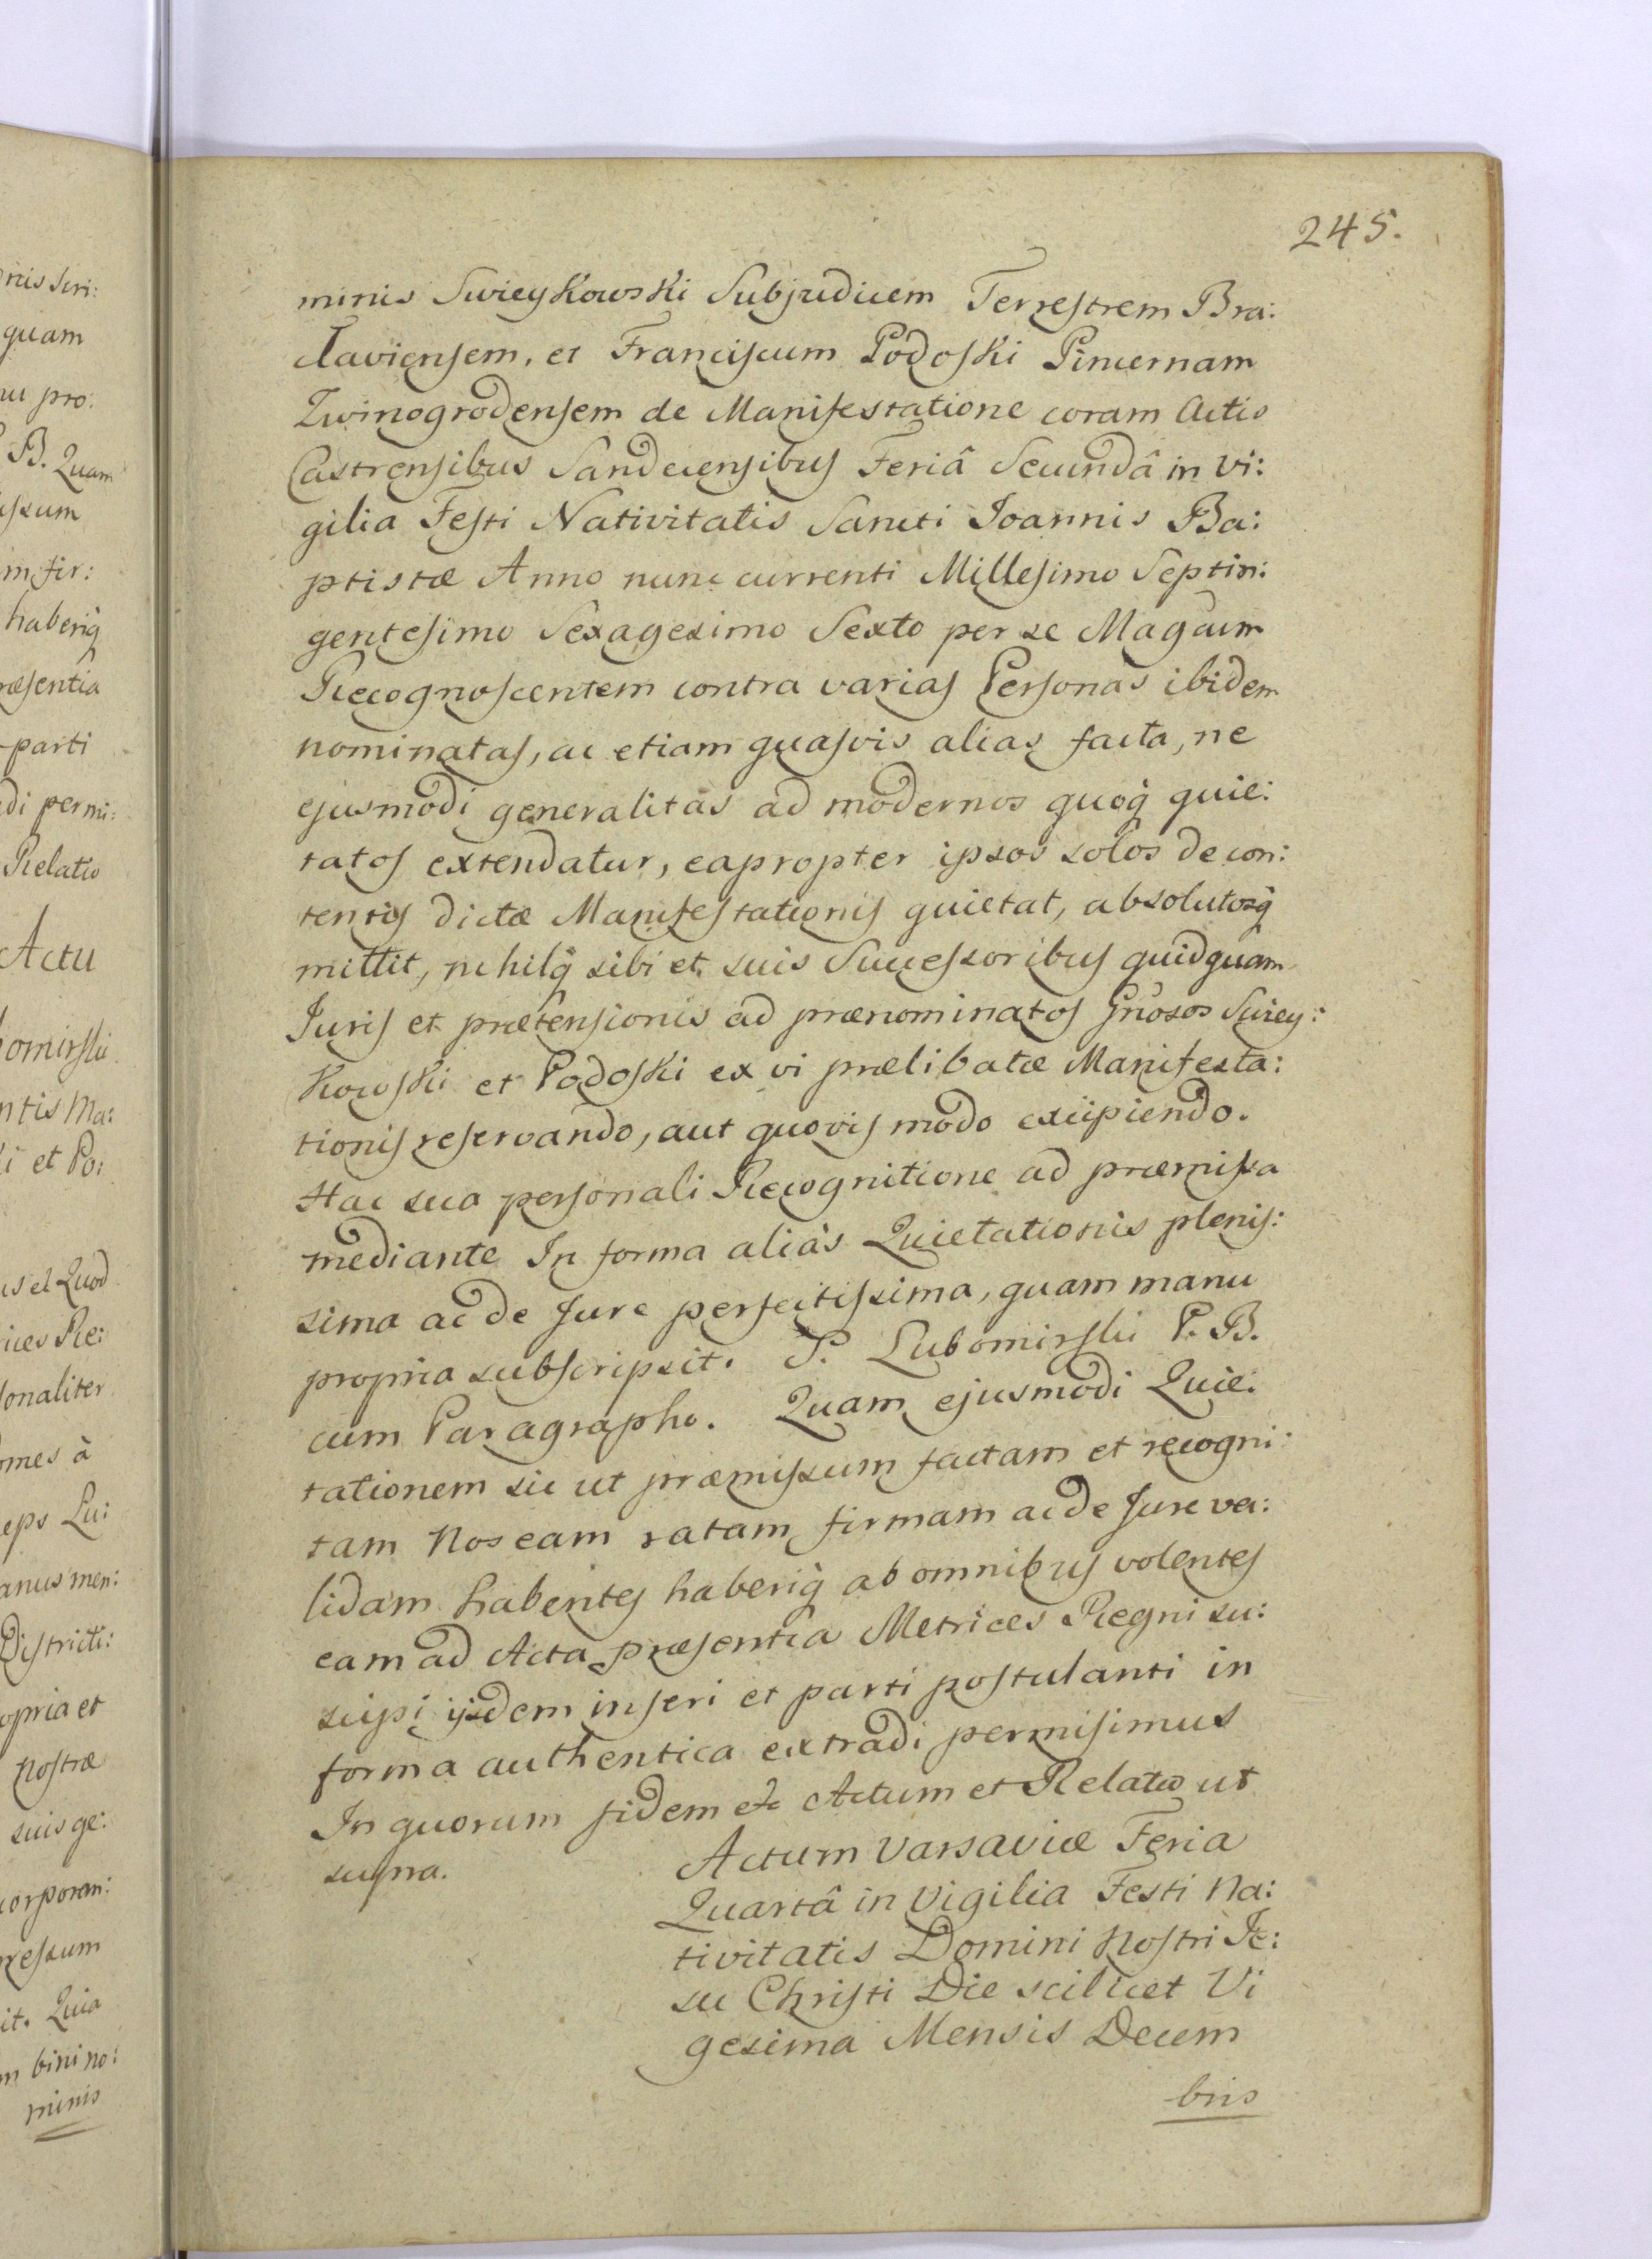 245.
minis Swieykowski Subjudicem Terrestrem Bra:
claviensem, et Franciscum Podoski Pincernam
Zwinogrodensem de Manifestatione coram Actis
Castrensibus Sandecensibus Feriâ Secundâ in Vi:
gilia Festi Nativitatis Sancti Joannis Ba:
ptistæ Anno nunc currenti Millesimo Septin:
gentesimo Sexagesimo Sexto per se Magcum
Recognoscentem contra varias Personas ibidem
nominatas, ac etiam quasvis alias facta, ne
ejusmodi generalitas ad modernos quoq quie:
tatos extendatur, eapropter ipsos solos de con:
tentis dictæ Manifestationis quietat, absolutosq
mittit, nihilq sibi et suis Successoribus quidquam
Juris et prætensionis ad prænominatos Gnosos Swiey:
kowski et Podoski ex vi prælibatæ Manifesta:
tionis reservando, aut quovis modo excipiendo.
Hac sua personali Recognitione ad præmissa
mediante In forma aliàs Quietationis plenis:
sima ac de Jure perfectissima, quam manu
propria subscripsit. S. Lubomirski P. B.
cum Paragrapho. Quam ejusmodi Quie:
tationem sic ut præmissum factam et recogni:
tam Nos eam ratam firmam ac de Jure va:
lidam habentes haberiq ab omnibus volentes
eam ad Acta præsentia Metrices Regni su:
scipi ijsdem inseri et parti postulanti in
forma authentica extradi permisimus
In quorum fidem etc Actum et Relatio ut
supra.
Actum Varsaviæ Feria
Quartâ in Vigilia Festi Na:
tivitatis Domini Nostri Je:
su Christi Die scilicet Vi
gesima Mensis Decem
bris
quam
pro:
B. Quam
haberiq
parti
di permi:
Relatio
Actu
omirski
ntis Ma:
i et Po:
is et Quod
ices Re:
sonaliter
omes à
eps Lu:
anus men:
Districti:
opria et
Nostræ
suis ge:
corporan:
ressum
it. Quia
m bini no:
minis